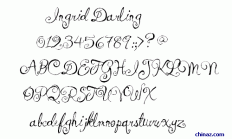 Ingrid Darling
0123456789:;?@
ABCDEFGHIJKLMN
OPQRSTUVWX
abcdefghijklmnopqrstuvwxyz
chinaz.com